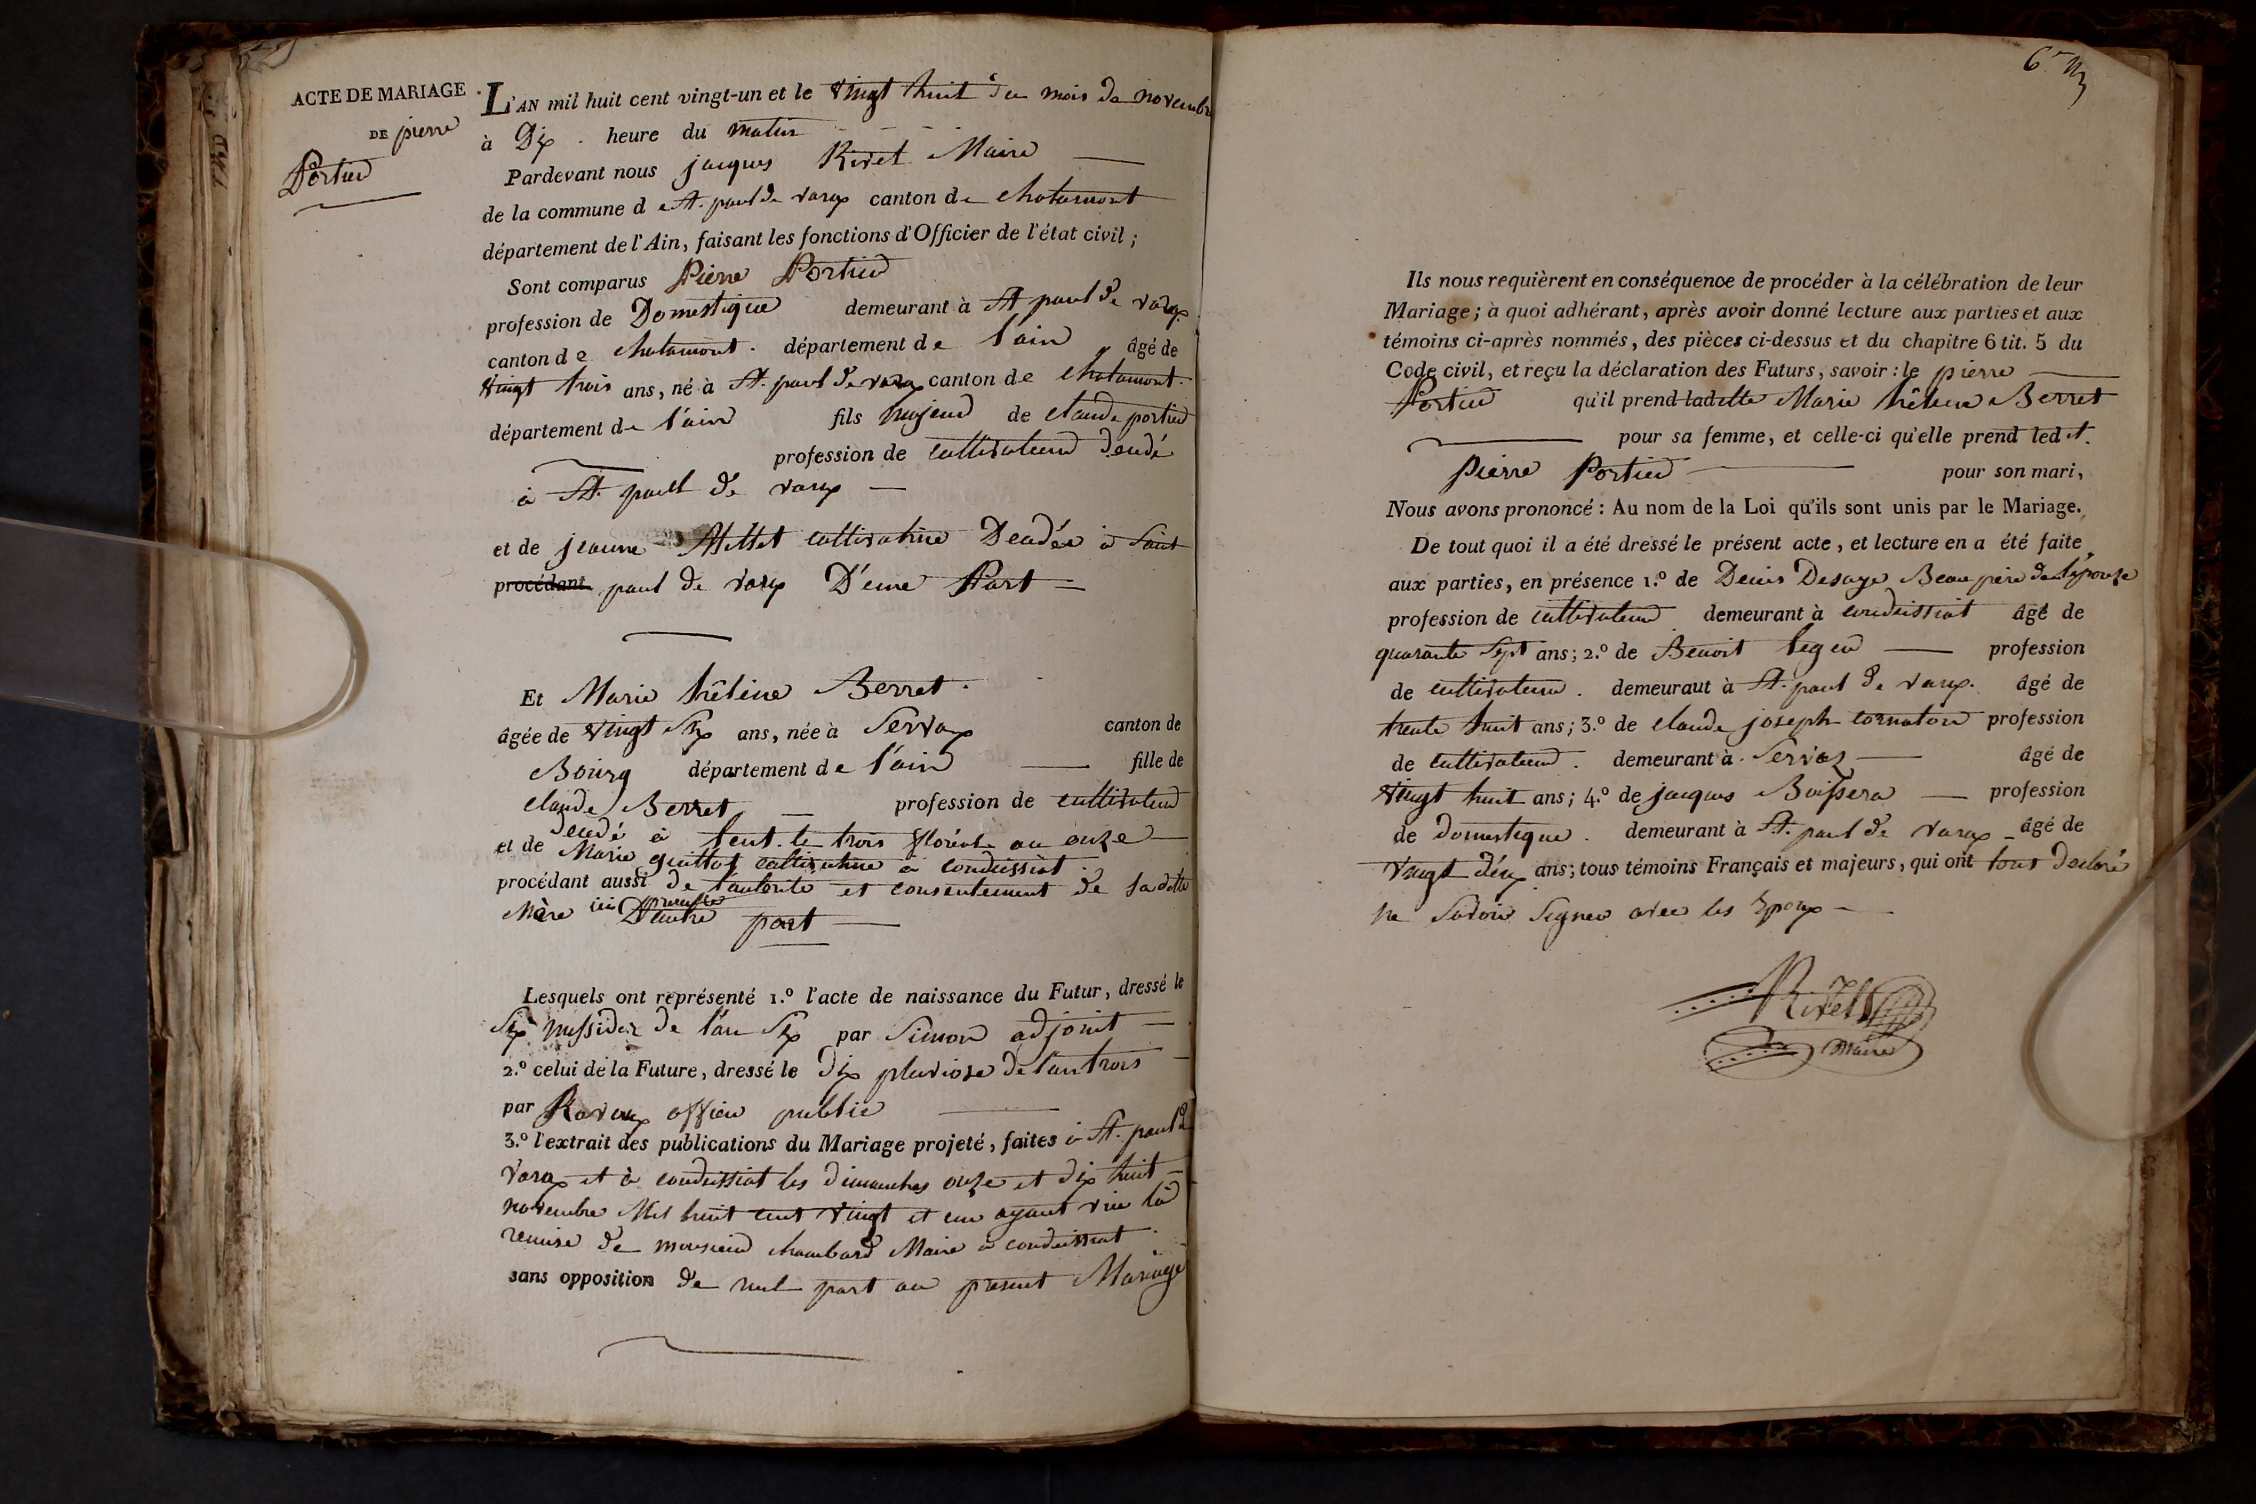 ACTE DE MARIAGE
DE pierre
Portier
L'AN mil huit cent vingt-un et le vingt huit du mois de novembre
à Dix heure du matin
Pardevant nous jacques Rivet Maire
de la commune de St. paul de varax canton de chatamont
département de l'Ain, faisant les fonctions d'Officier de l'état civil ;
Sont comparus Pierre Portier
profession de Domestique demeurant à St paul de varax
canton de chatamont. département de l'ain âgé de
vingt trois ans, né à St. paul de varax canton de chatamont.
département de l'ain fils majeur de claude portier
profession de cultivateur décédé
à St. paul de varax
et de jeanne Millet cultivatrice Décédée à Saint
procédant paul de varax D'une Part
Et Marie hêlène Berret.
âgée de vingt Six ans, née à Servax canton de
Bourg département de l'ain fille de
claude Berret profession de cultivateur
décédé à lent. le trois floréal an onze
et de Marie guillot cultivatrice à condeissiat
procédant aussi de l'autorité et consentement de sadite
Mère ici présente D'autre part
Lesquels ont représenté 1.º l'acte de naissance du Futur, dressé le
Six messidor de l'an Six par Simon adjoint
2.º celui de la Future, dressé le dix pluviose de l'an trois
par Ravoux officier public
3.º l'extrait des publications du Mariage projeté, faites à St. paul de
varax et à condeissiat les dimanches onze et dix huit
novembre Mil huit cent vingt et un ayant vu la
remise de monsieur chambard Maire à condeissiat
sans opposition de nul part au présent Mariage
Ils nous requièrent en conséquence de procéder à la célébration de leur
Mariage ; à quoi adhérant, après avoir donné lecture aux parties et aux
témoins ci-après nommés, des pièces ci-dessus et du chapitre 6 tit. 5 du
Code civil, et reçu la déclaration des Futurs, savoir : le pierre
Portier qu'il prend ladette Marie hêlene Berret
pour sa femme, et celle-ci qu'elle prend led t.
Pierre Portier pour son mari,
Nous avons prononcé : Au nom de la Loi qu'ils sont unis par le Mariage.
De tout quoi il a été dressé le présent acte, et lecture en a été faite
aux parties, en présence 1.º de Denis Desaye Beau père de l'épouse
profession de cultivateur demeurant à condeissiat âgé de
quarante Sept ans ; 2.º de Benoit leger profession
de cultivateur. demeuraut à St. paul de varax. âgé de
trente huit ans ; 3.º de claude joseph cornaton profession
de cultivateur. demeurant à Servas âgé de
vingt huit ans ; 4.º de jacques Boissera profession
de domestique. demeurant à St. paul de varax âgé de
vingt deux ans ; tous témoins Français et majeurs, qui ont tous declaré
ne Savoir Signer avec les Epoux
Rivet
maire